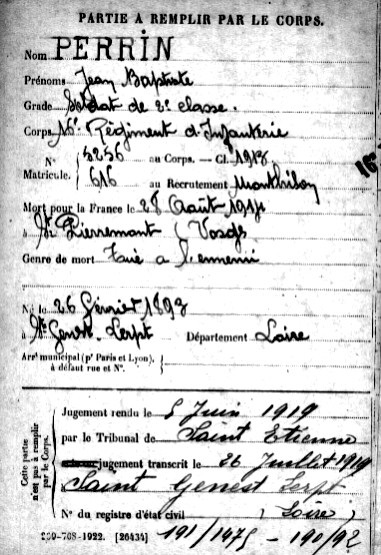 PARTIE À REMPLIR PAR LE CORPS.
Nom PERRIN
Prénoms Jean Baptiste
Grade Soldat de 2e classe.
Corps 16e Régiment d'Infanterie
N° 5256 au Corps. — Cl. 1913.
Matricule. 616 au Recrutement Montbrison
Mort pour la France le 28 Août 1914
à St Pierremont (Vosges
Genre de mort Tué à l'ennemi
Né le 26 Février 1893
à St Genest-Lerpt Département Loire
Arrt municipal (pr Paris et Lyon), à défaut rue et N°.
Cette partie n'est pas à remplir par le Corps.
Jugement rendu le 5 Juin 1919
par le Tribunal de Saint Etienne
jugement transcrit le 26 Juillet 1919
Saint Genest Lerpt
N° du registre d'état civil (Loire)
191/1475 - 190/92
-708-1922. [26434]